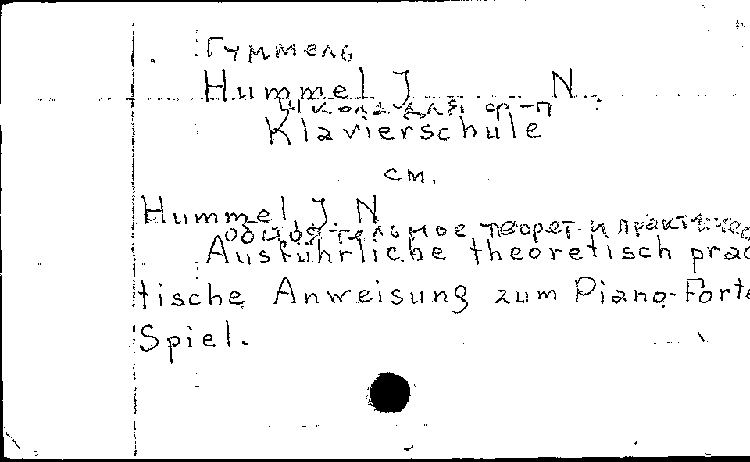 Гуммель
Hummel J N.
школа для ф-п
Klavierschule
см.
Hummel, J. N
теорет. и практичес
Ausführliche theoretisch prac
tische Anweisung zum Piano-Forte
Spiel.